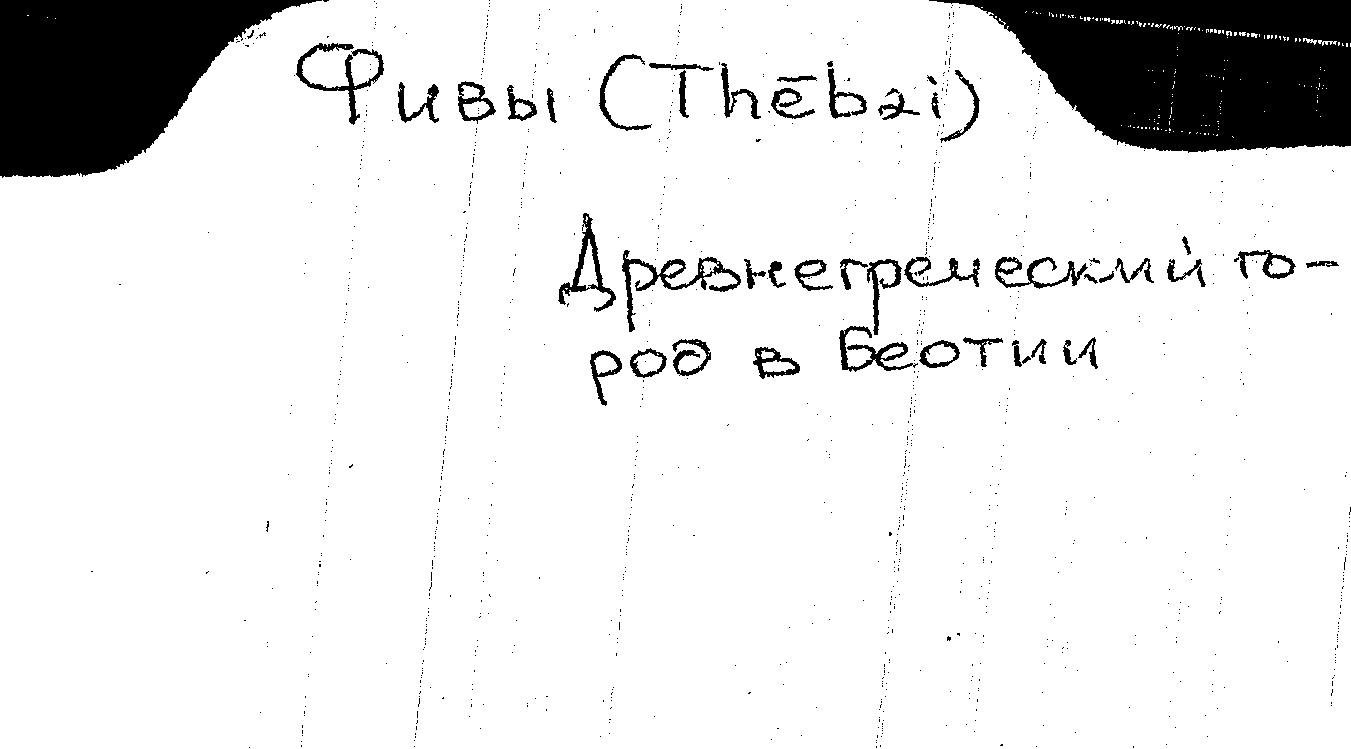 Фивы (Thēbai)
Древнегреческий го-
род в Беотии